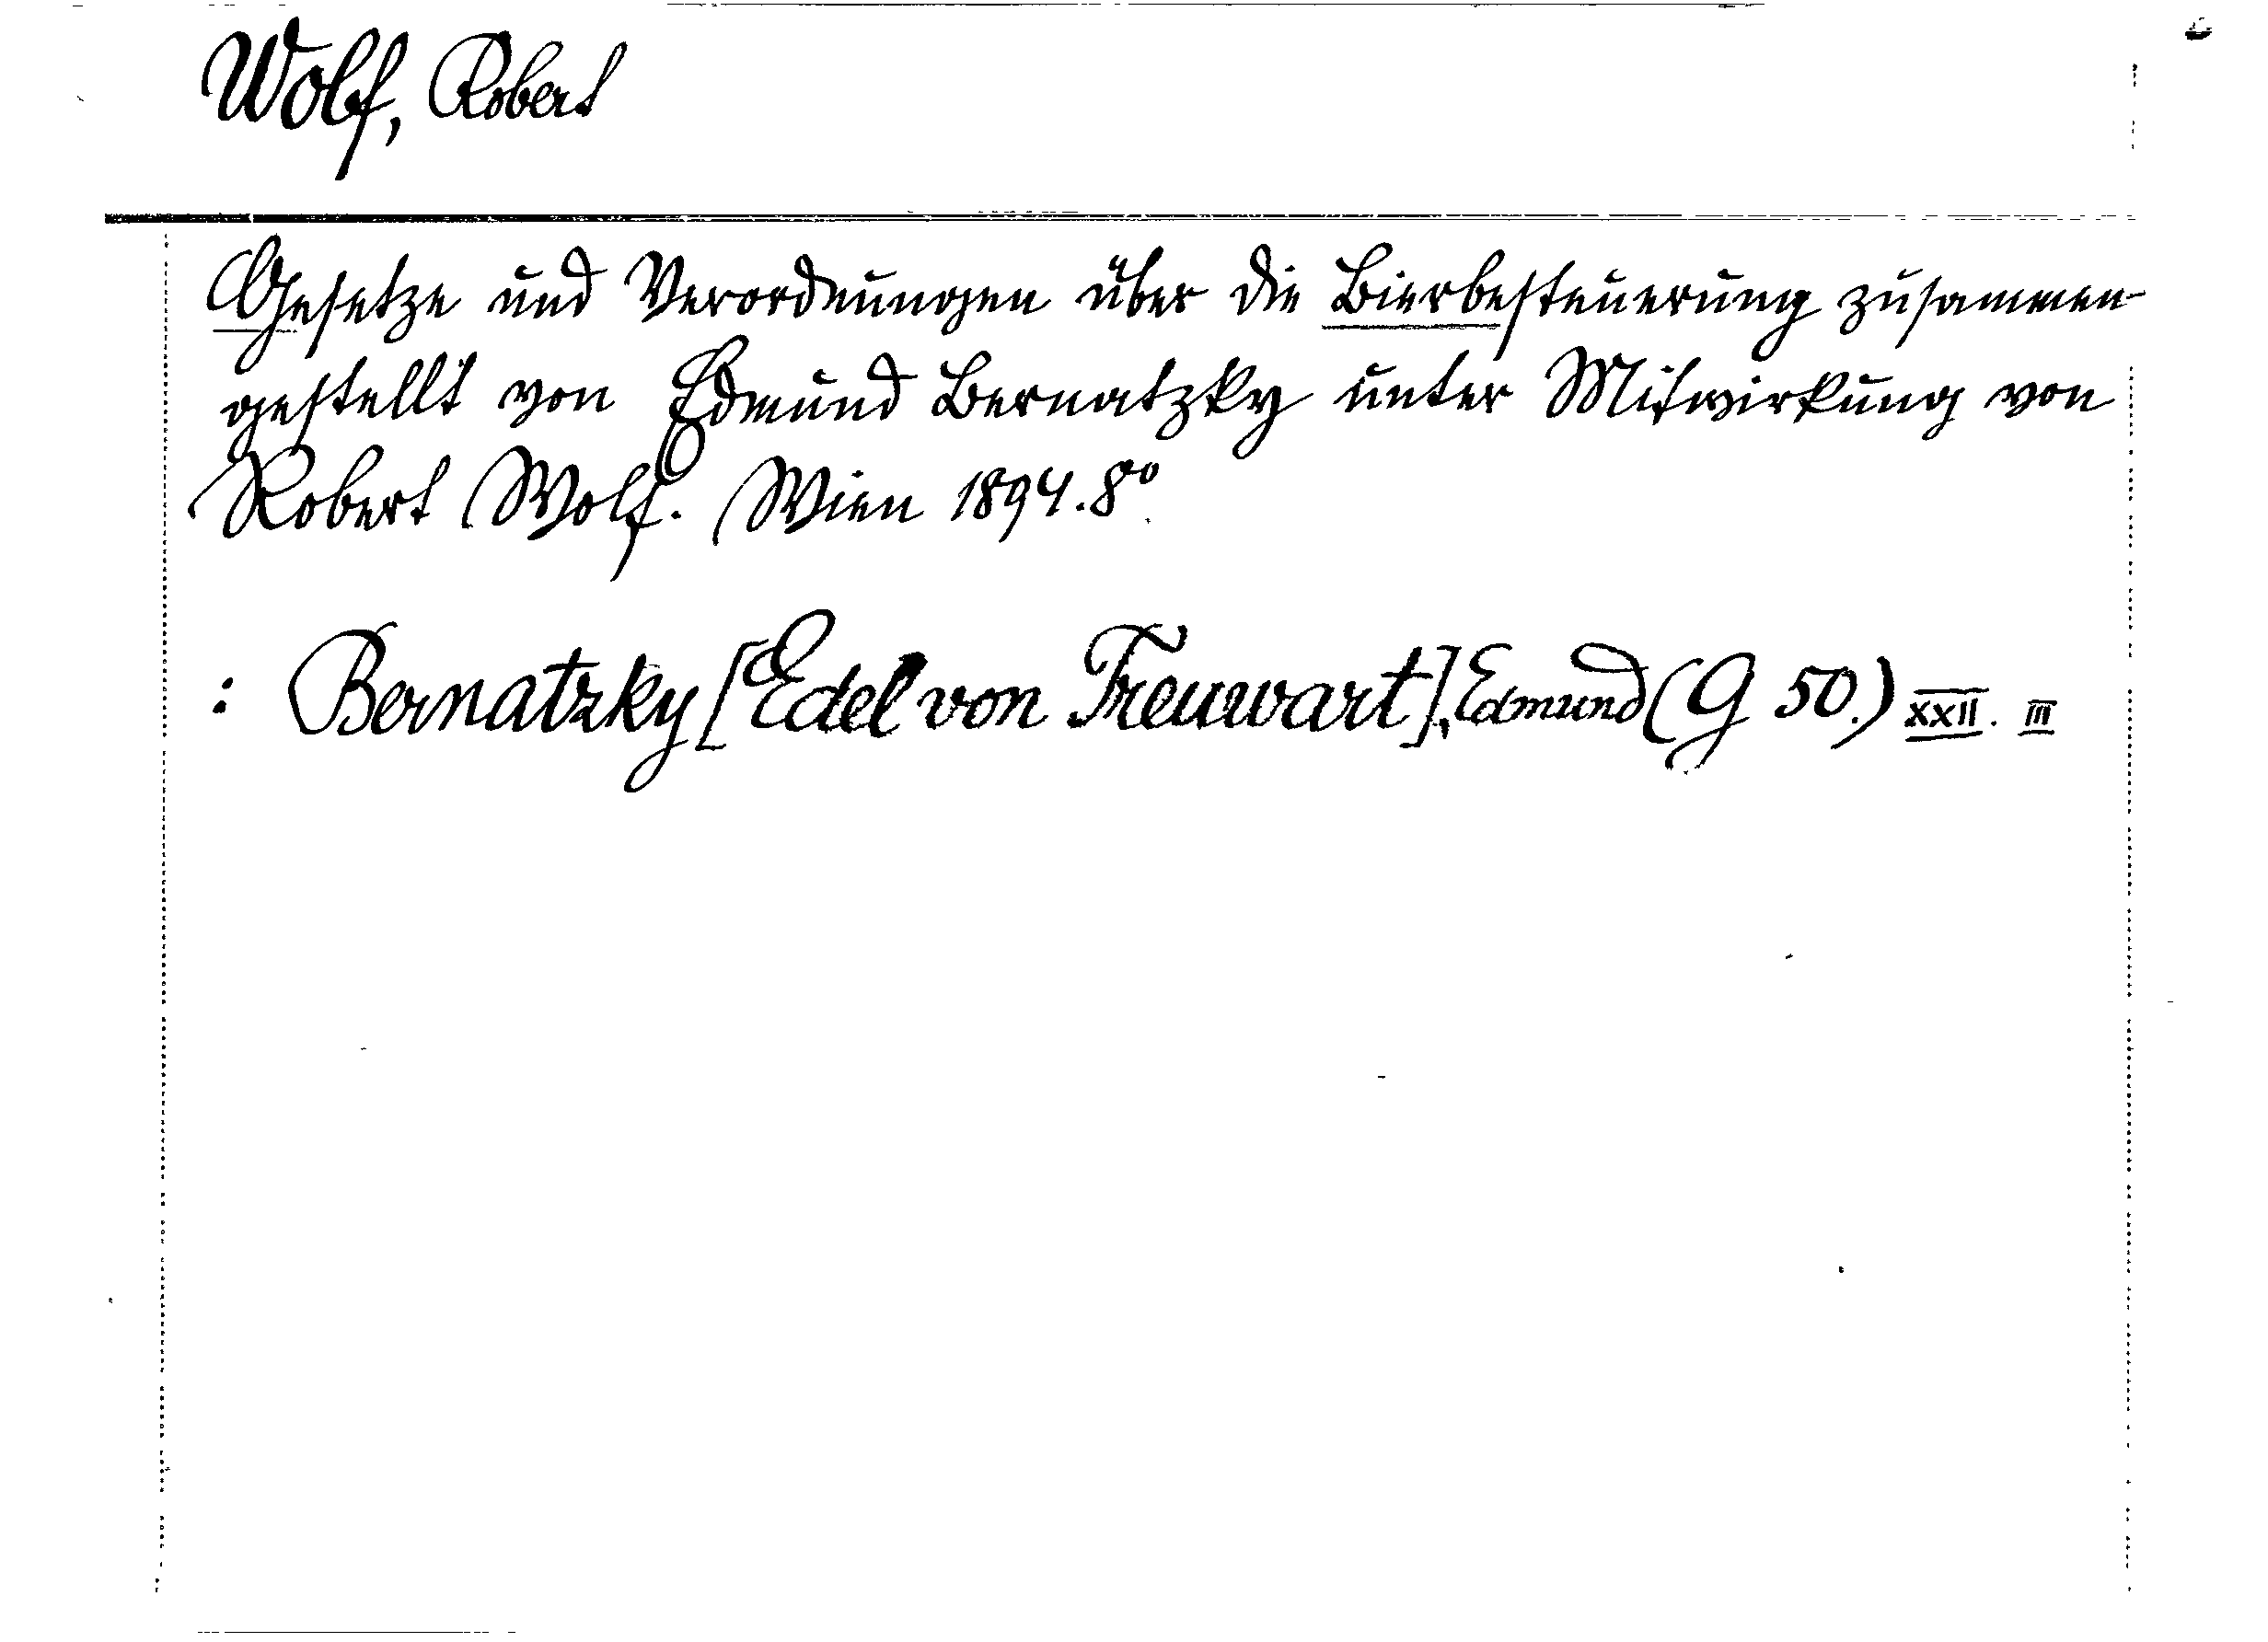 Wolf, Robert
Gesetze und Verordnungen über die Bierbesteuerung zusammen-
gestellt von Edmund Bernatzky unter Mitwirkung von
Robert Wolf. Wien 1894. 8º.
: Bernatzky [Edel von Treuwart], Edmund (G 50.) XXII. III